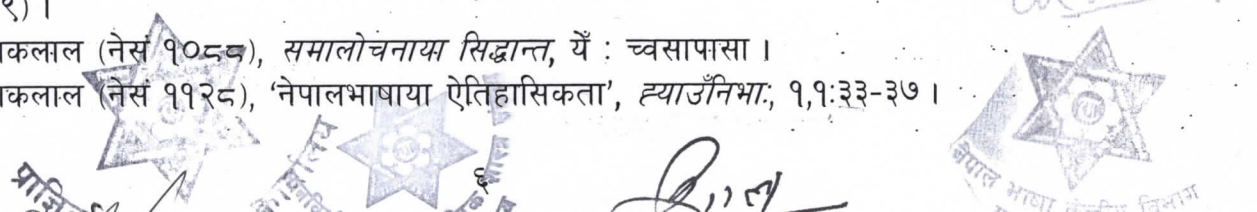 १) ।
कलाल (नेसं १०८८), समालोचनाया सिद्धान्त, येँ : च्वसापासा ।
कलाल (नेसं ११२८), 'नेपालभाषाया ऐतिहासिकता', ह्याउँनिभाः, १,१:३३-३७ ।
६
नेपाल भाषा केन्द्रीय विभाग